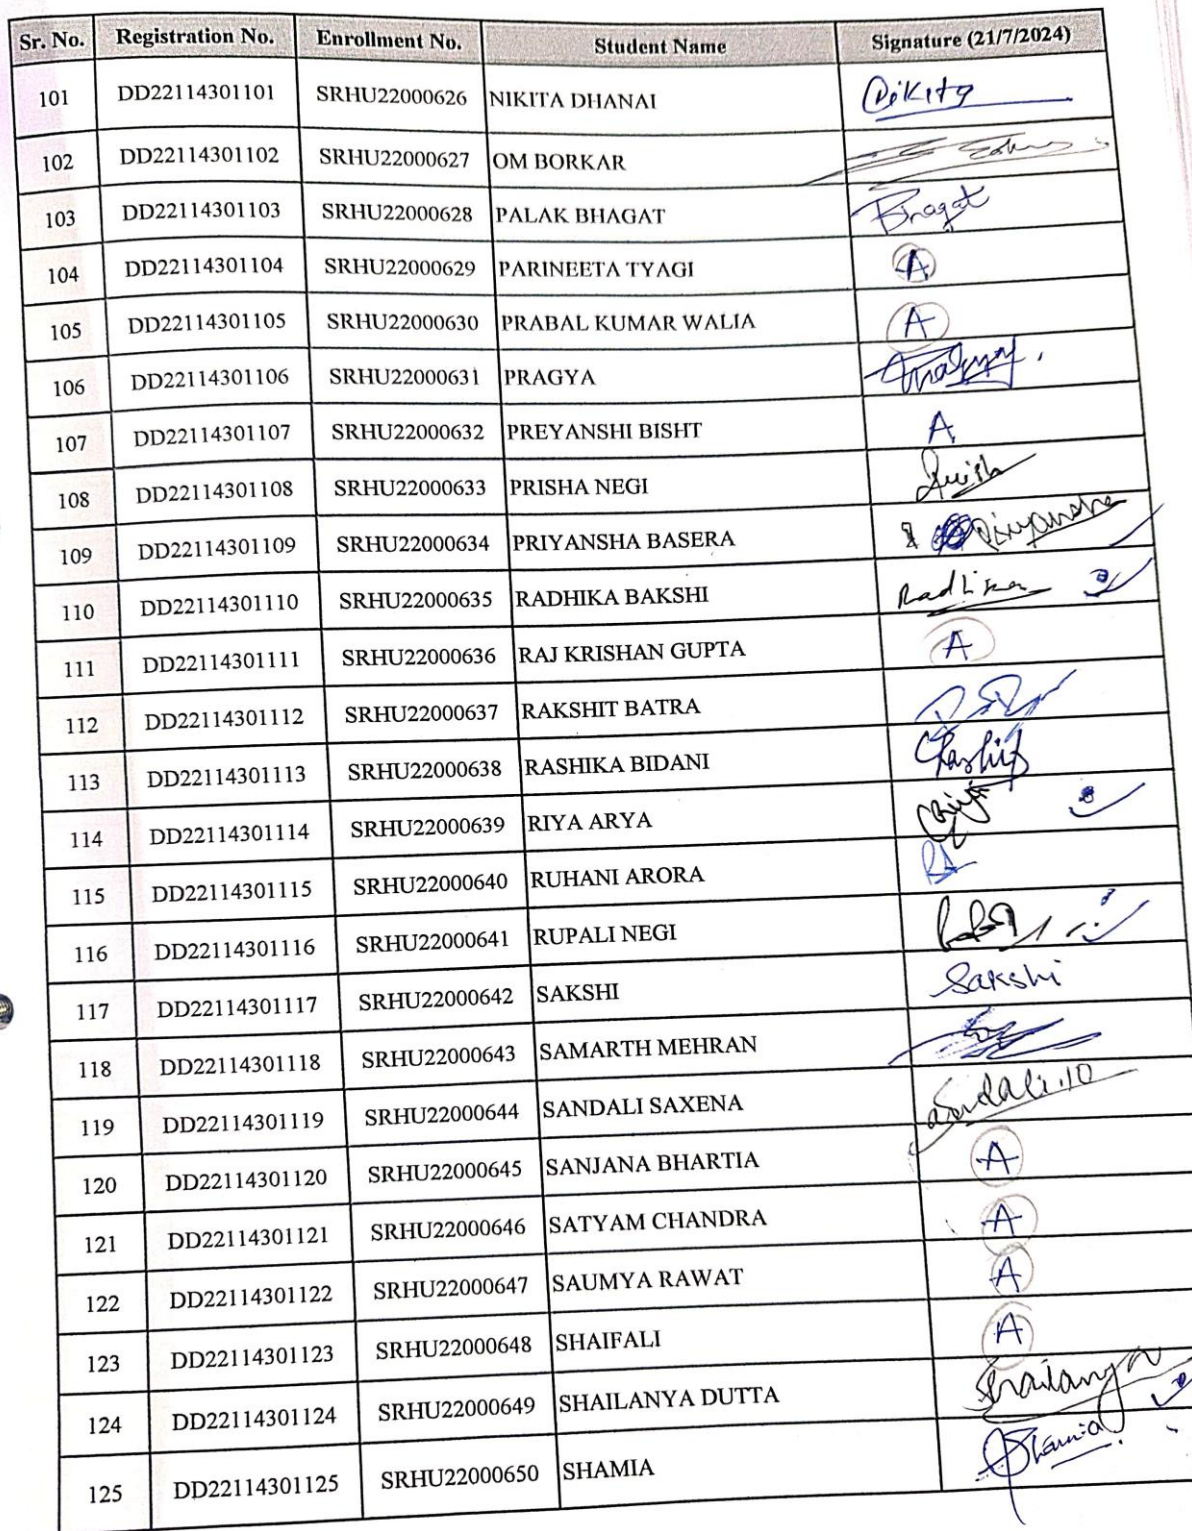 Sr. No. Registration No. Enrollment No. Student Name Signature (21/7/2024)
101 DD22114301101 SRHU22000626 NIKITA DHANAI Nikita
102 DD22114301102 SRHU22000627 OM BORKAR
103 DD22114301103 SRHU22000628 PALAK BHAGAT Bhagat
104 DD22114301104 SRHU22000629 PARINEETA TYAGI A
105 DD22114301105 SRHU22000630 PRABAL KUMAR WALIA A
106 DD22114301106 SRHU22000631 PRAGYA
107 DD22114301107 SRHU22000632 PREYANSHI BISHT A
108 DD22114301108 SRHU22000633 PRISHA NEGI
109 DD22114301109 SRHU22000634 PRIYANSHA BASERA Priyansha
110 DD22114301110 SRHU22000635 RADHIKA BAKSHI Radhika
111 DD22114301111 SRHU22000636 RAJ KRISHAN GUPTA A
112 DD22114301112 SRHU22000637 RAKSHIT BATRA
113 DD22114301113 SRHU22000638 RASHIKA BIDANI
114 DD22114301114 SRHU22000639 RIYA ARYA
115 DD22114301115 SRHU22000640 RUHANI ARORA RA
116 DD22114301116 SRHU22000641 RUPALI NEGI
117 DD22114301117 SRHU22000642 SAKSHI Sakshi
118 DD22114301118 SRHU22000643 SAMARTH MEHRAN
119 DD22114301119 SRHU22000644 SANDALI SAXENA Sandali.10
120 DD22114301120 SRHU22000645 SANJANA BHARTIA A
121 DD22114301121 SRHU22000646 SATYAM CHANDRA A
122 DD22114301122 SRHU22000647 SAUMYA RAWAT A
123 DD22114301123 SRHU22000648 SHAIFALI A
124 DD22114301124 SRHU22000649 SHAILANYA DUTTA Shailanya
125 DD22114301125 SRHU22000650 SHAMIA Shamia